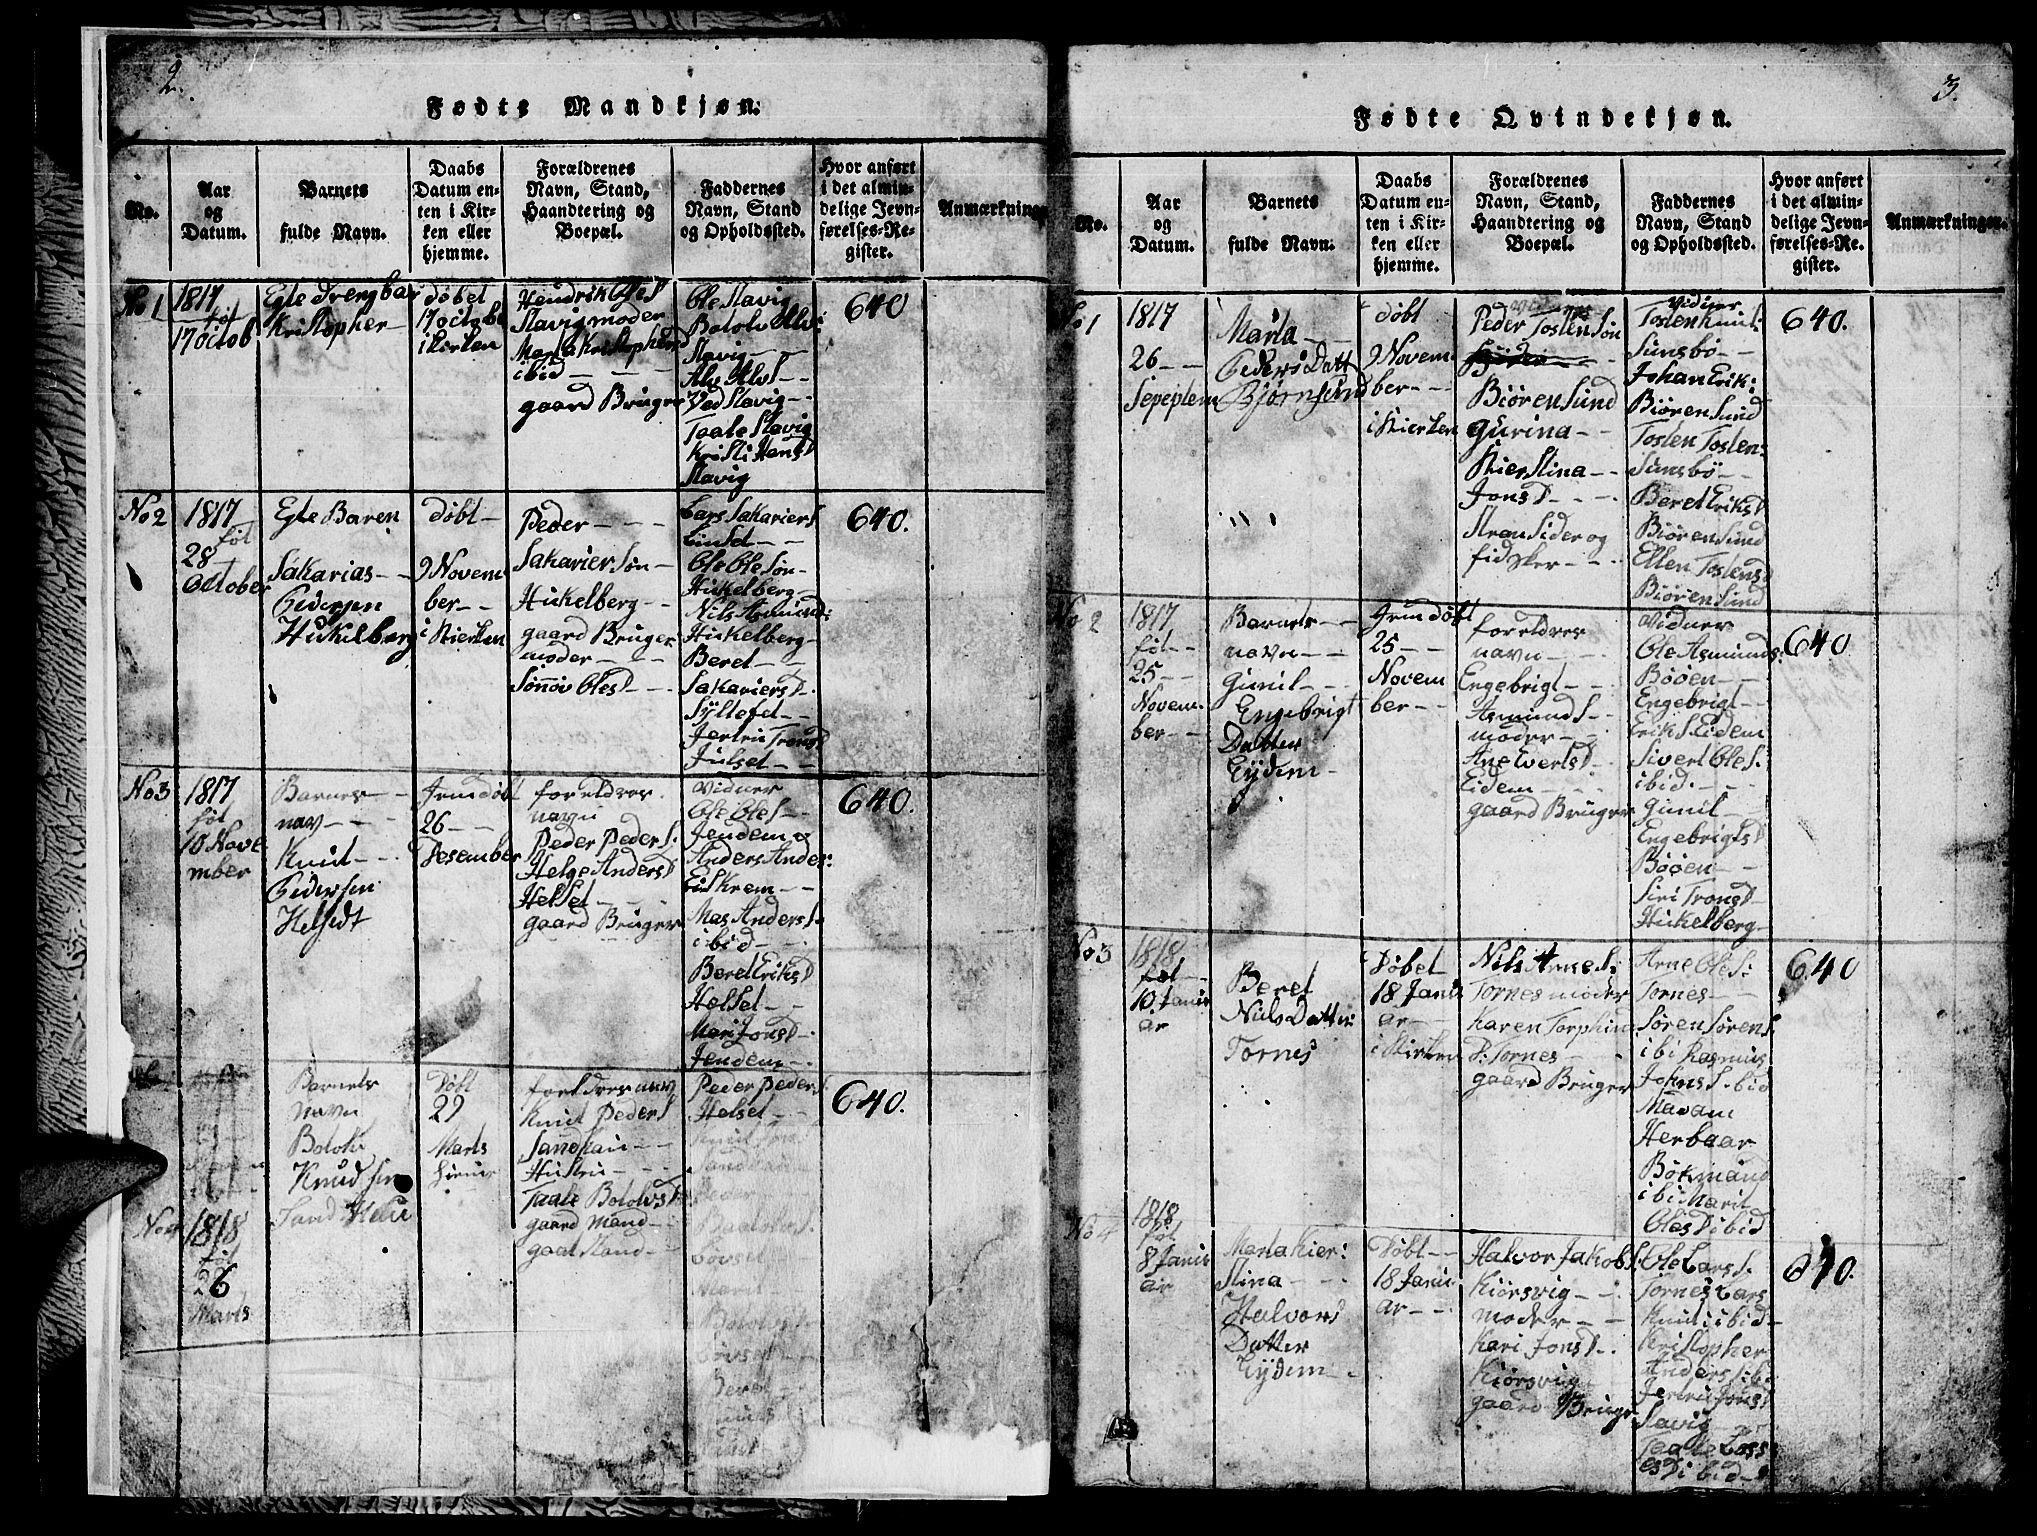 2.
Fødte Mandkjøn.
No.
Aar
og
Datum.
Barnets
fulde Navn.
Daabs
Datum en-
ten i Kir-
ken eller
hjemme.
Forældrenes
Navn, Stand,
Haandtering og
Boepæl.
Faddernes
Navn, Stand
og Opholdssted.
Hvor anført
i det almin-
delige Jevn-
førelses-Re-
gister.
Anmærkninger
No 1
1817
føt
17 octob
Egte Drengbar
Kristopher
døbet
17 octobe
i kirken
Hendrik Oles
Slavig moder
Marta Kristophersd
ibid
gaard Bruger
Ole Slavig
Botolv Alv:
Slavig
Alv Alvs
Ved Slavig
Taale Slavig
Kristi Hansd
Slavig
640
No 2
1817
føt
28
October
Egte Baren
Sakarias
Pedersen
Hukelberg
døbt
9 Novem
ber
i Kierken
Peder
Sakarier Søn
Hukelberg
gaard Bruger
moder
Sønnøv Olesd
Lars Sakariers
Linset
Ole Ole Søn
Hukelberg
Nils Asmund:
Hukelberg
Beret
Sakariersd
Syltefet
Jertru Tronsd
Julset
640.
No 3
1817
føt
10 Nove
mber
Barnes
nav
Knut
Pedersen
Helsedt
Jemdøbt
26
Desember
foreldres
navn
Peder Peders.
Helge Andersd
Helset
gaard Bruger
vidner
Ole Oles
Jendem
Anders Ander:
Eiskrem
Mas Anders
ibid
Beret Eriksd
Helset
Mari Jonsd
Jendem
640.
No 4
1818
føt
26
Marts
Barnets
navn
Botolv
Knudsen
Døbt
29
Marts
foreldres nav
Knut Peders
Sandhau
Hustru
Taale Botolvsd
gaard Mand
Peder Peders
Helset
Peder
Løvset
Marit
Botolvs
Løvset
640.
3.
Fødte Qvindekjøn.
No.
Aar
og
Datum.
Barnets
fulde Navn.
Daabs
Datum en-
ten i Kir-
ken eller
hjemme.
Forældrenes
Navn, Stand,
Haandtering og
Boepæl.
Faddernes
Navn, Stand
og Opholdssted.
Hvor anført
i det almin-
delige Jevn-
førelses-Re-
gister.
Anmærkninger.
No 1
1817
26
Sepeptem
Marta
Peders Datt
Bjørnsund
døbt
9 Novem
ber
i Kierken
Peder Tosten Søn
Biøren Sund
Gurina
Kierstina
Jonsd
Stran Sider og
fidsker
vidner
Tosten Knut:
Sunsbø
Johan Erik:
Biøren Sund
Tosten Tosten:
Sunsbø
Beret Eriksd
Biøren Sund
Ellen Tostensd
Biøren Sund
640.
No 2
1817
føt
25
Novem
ber
Barnets
navn
Gunil
Engebrigt
Datter
Eydem
Jemdøbt
25
Novem
ber
foreldres
navn
Engebrigt
Asmunds
moder
Ane Evertsd
Eidem
gaard Bruger
vidner
Ole Asmunds:
Bøøen
Engebrigt
Eriks Eidem
Sivert Oles:
ibid.
Gunil
Engebrigtsd
Bøøen
Siri Tronsd
Hukelberg
640
No 3
1818
føt
10 Janu
ar
Beret
Niels Datter
Tornes
Døbet
18 Janu
ar
i Kirken
Nils Arnes:
Tornes moder
Karen Torphin
D: Tornes
gaard Bruger
Arne Oles:
Tornes
Søren Sørens:
ibi Rasmus
Johns S. ibid
Madam
Herbaar
Bøkmand
ibi Marit
Olesd ibid
640
No 4
1818
føt
8 Janu
ar
Marta Kier:
stina
Halvors
Datter
Eydem
Døbt
18 Janu
ar
Halvor Jakobs
Kiørsvig
moder
Kari Jonsd
Kiørsvig
gaard Bruger
Ole Lars S.
Tornes Lars
Knut i ibid
Kristopher
Anders S. ibi
Jertru Jonsd
Slavig
Taale Lars
sd ibid
640.